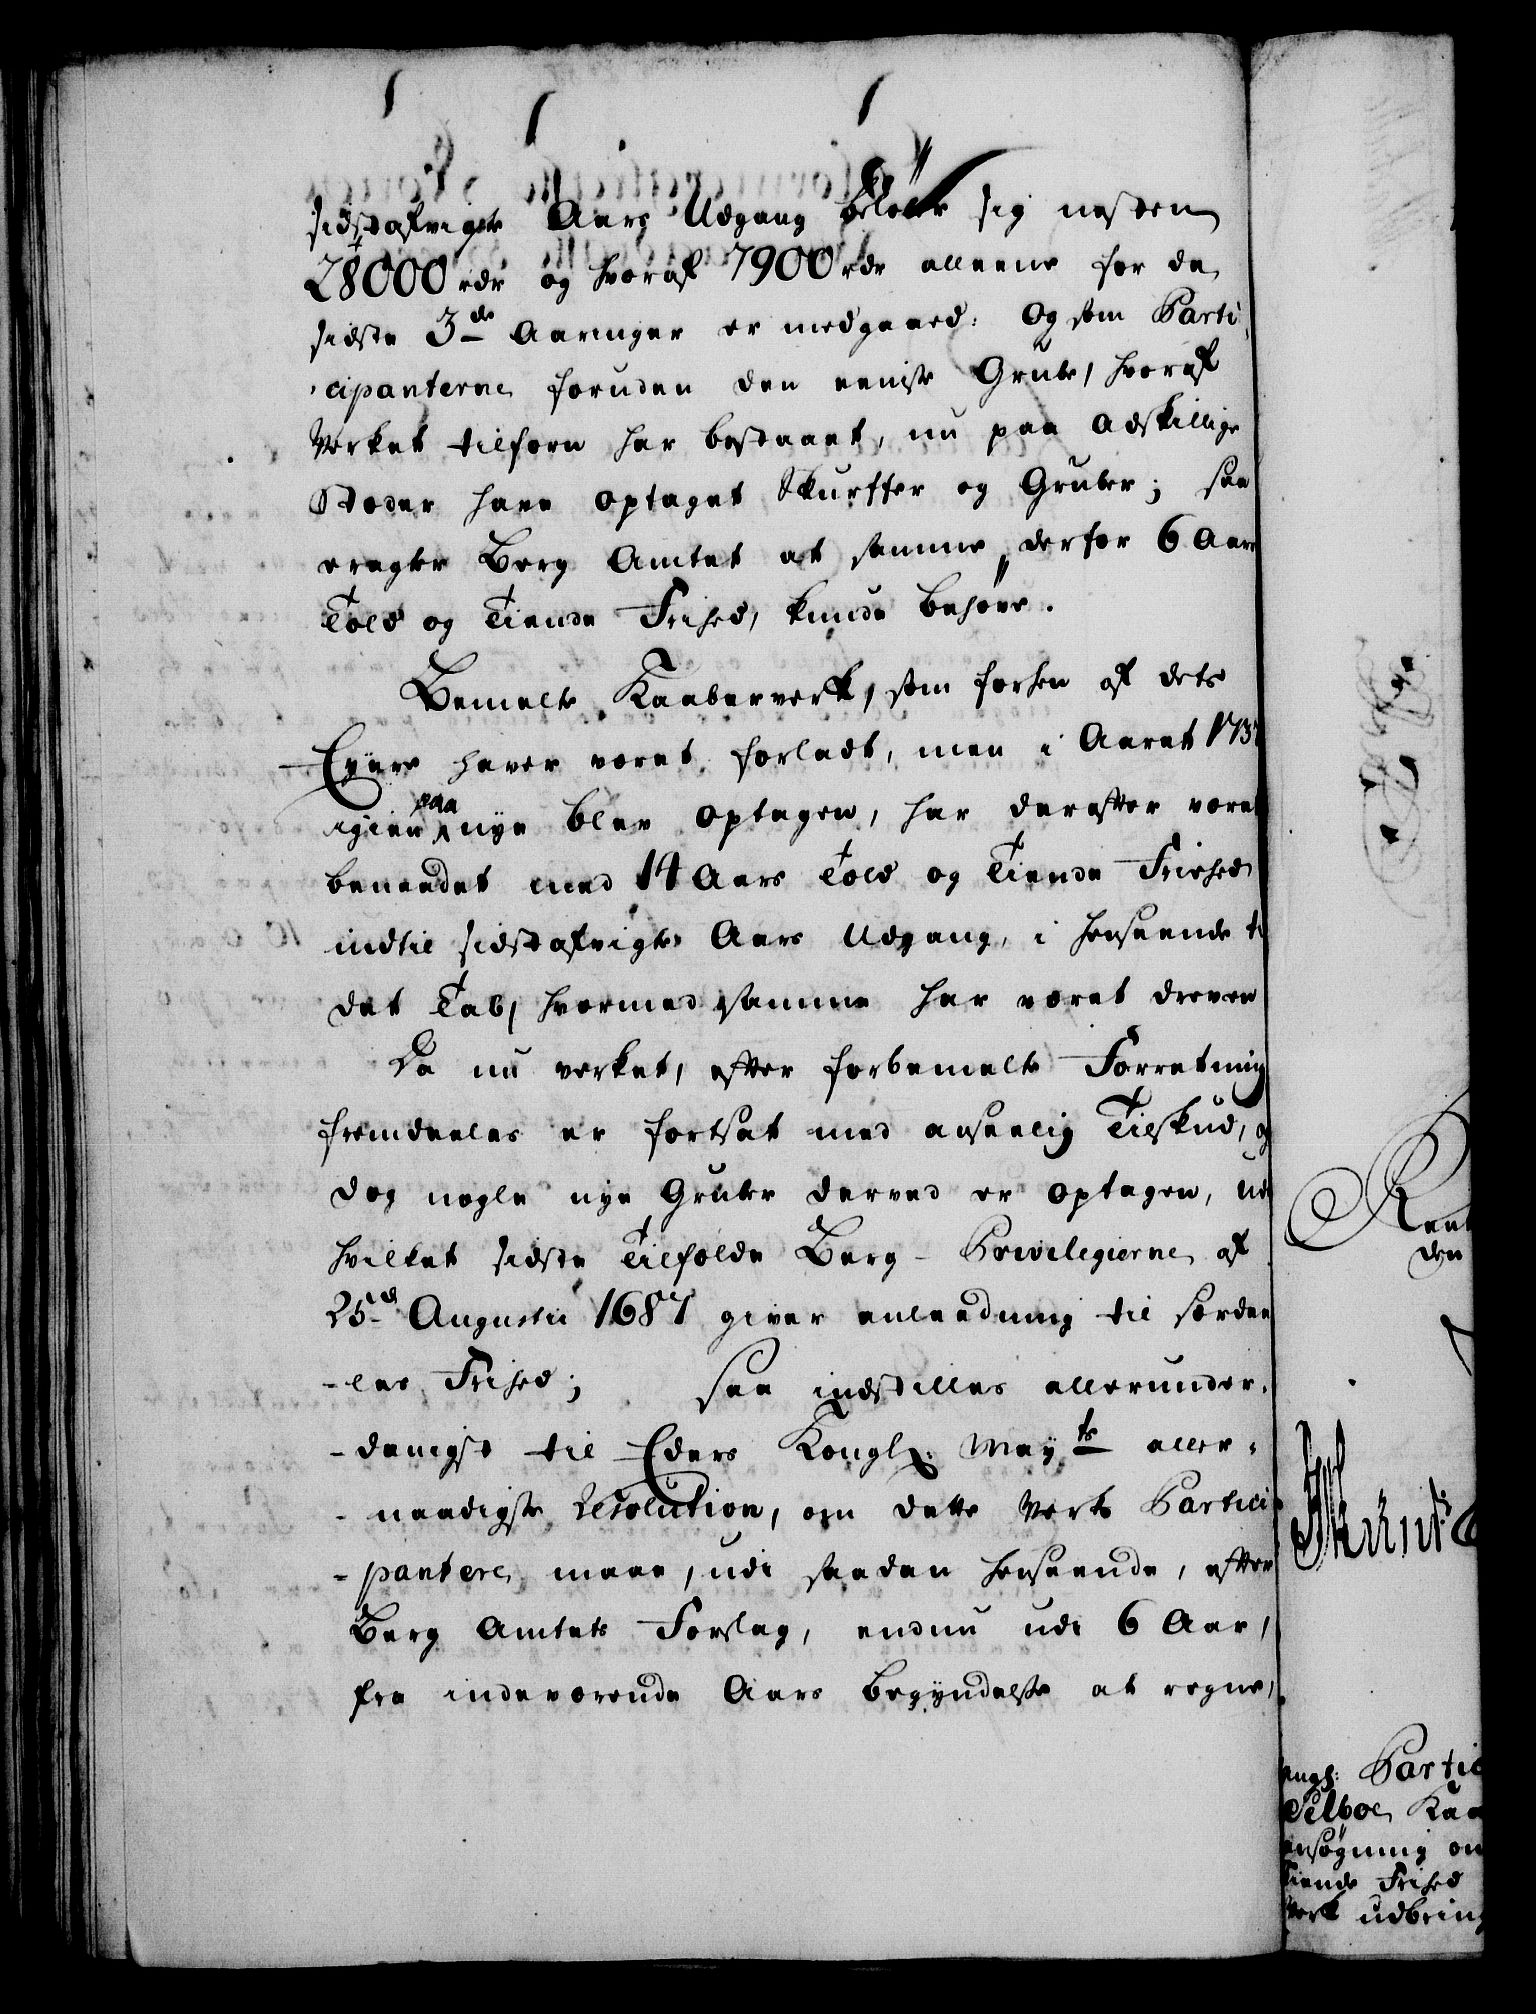 sidstafvigte Aars Udgang beløber sig næsten
28000 rdr og hvoraf 7900 rdr alleene for de
sidste 3de Aaringer er medgaaed: Og som Parti-
-cipanterne foruden den eeniste Grube, hvoraf
Verket tilforn har bestaaet, nu paa adskillige
Stæder have optaget Skurffer og Gruber; saa
eragter Berg Amtet at samme derfor 6 Aars
Told og Tiende Frihed, kunde behøve.
Bemelte Kaaberverk, som forhen af dets
Eyere haver været forladt, men i Aaret 173
igien paa nye blev optagen, har derefter været
benaadet med 14 Aars Told og Tiende Friehed
indtil sidstafvigte Aars Udgang, i henseende til
det Tab, hvormed samme har været dreven
Da nu verket, efter forbemelte Forretning
fremdeeles er fortsat med anseelig Tilskud, og
dog nogle nye Gruber derved er optagen, udi
hvilket sidste Tilfælde Berg-Privilegierne af
25d Augusti 1687 giver anleedning til særdee-
-les Frihed; Saa indstilles allerunder-
-danigst til Eders Kongl. Mayts aller-
-naadigste Resolution, om dette Verks Partici-
-pantere maae, udi saadan henseende, efter
Berg Amtets Forslag, endnu udi 6 Aar,
fra indeværende Aars Begyndelse at regne,
Rent
den
angl: Partic
Selboe Kaa
ansøgning om
Tiende Frihed
Verk udbring